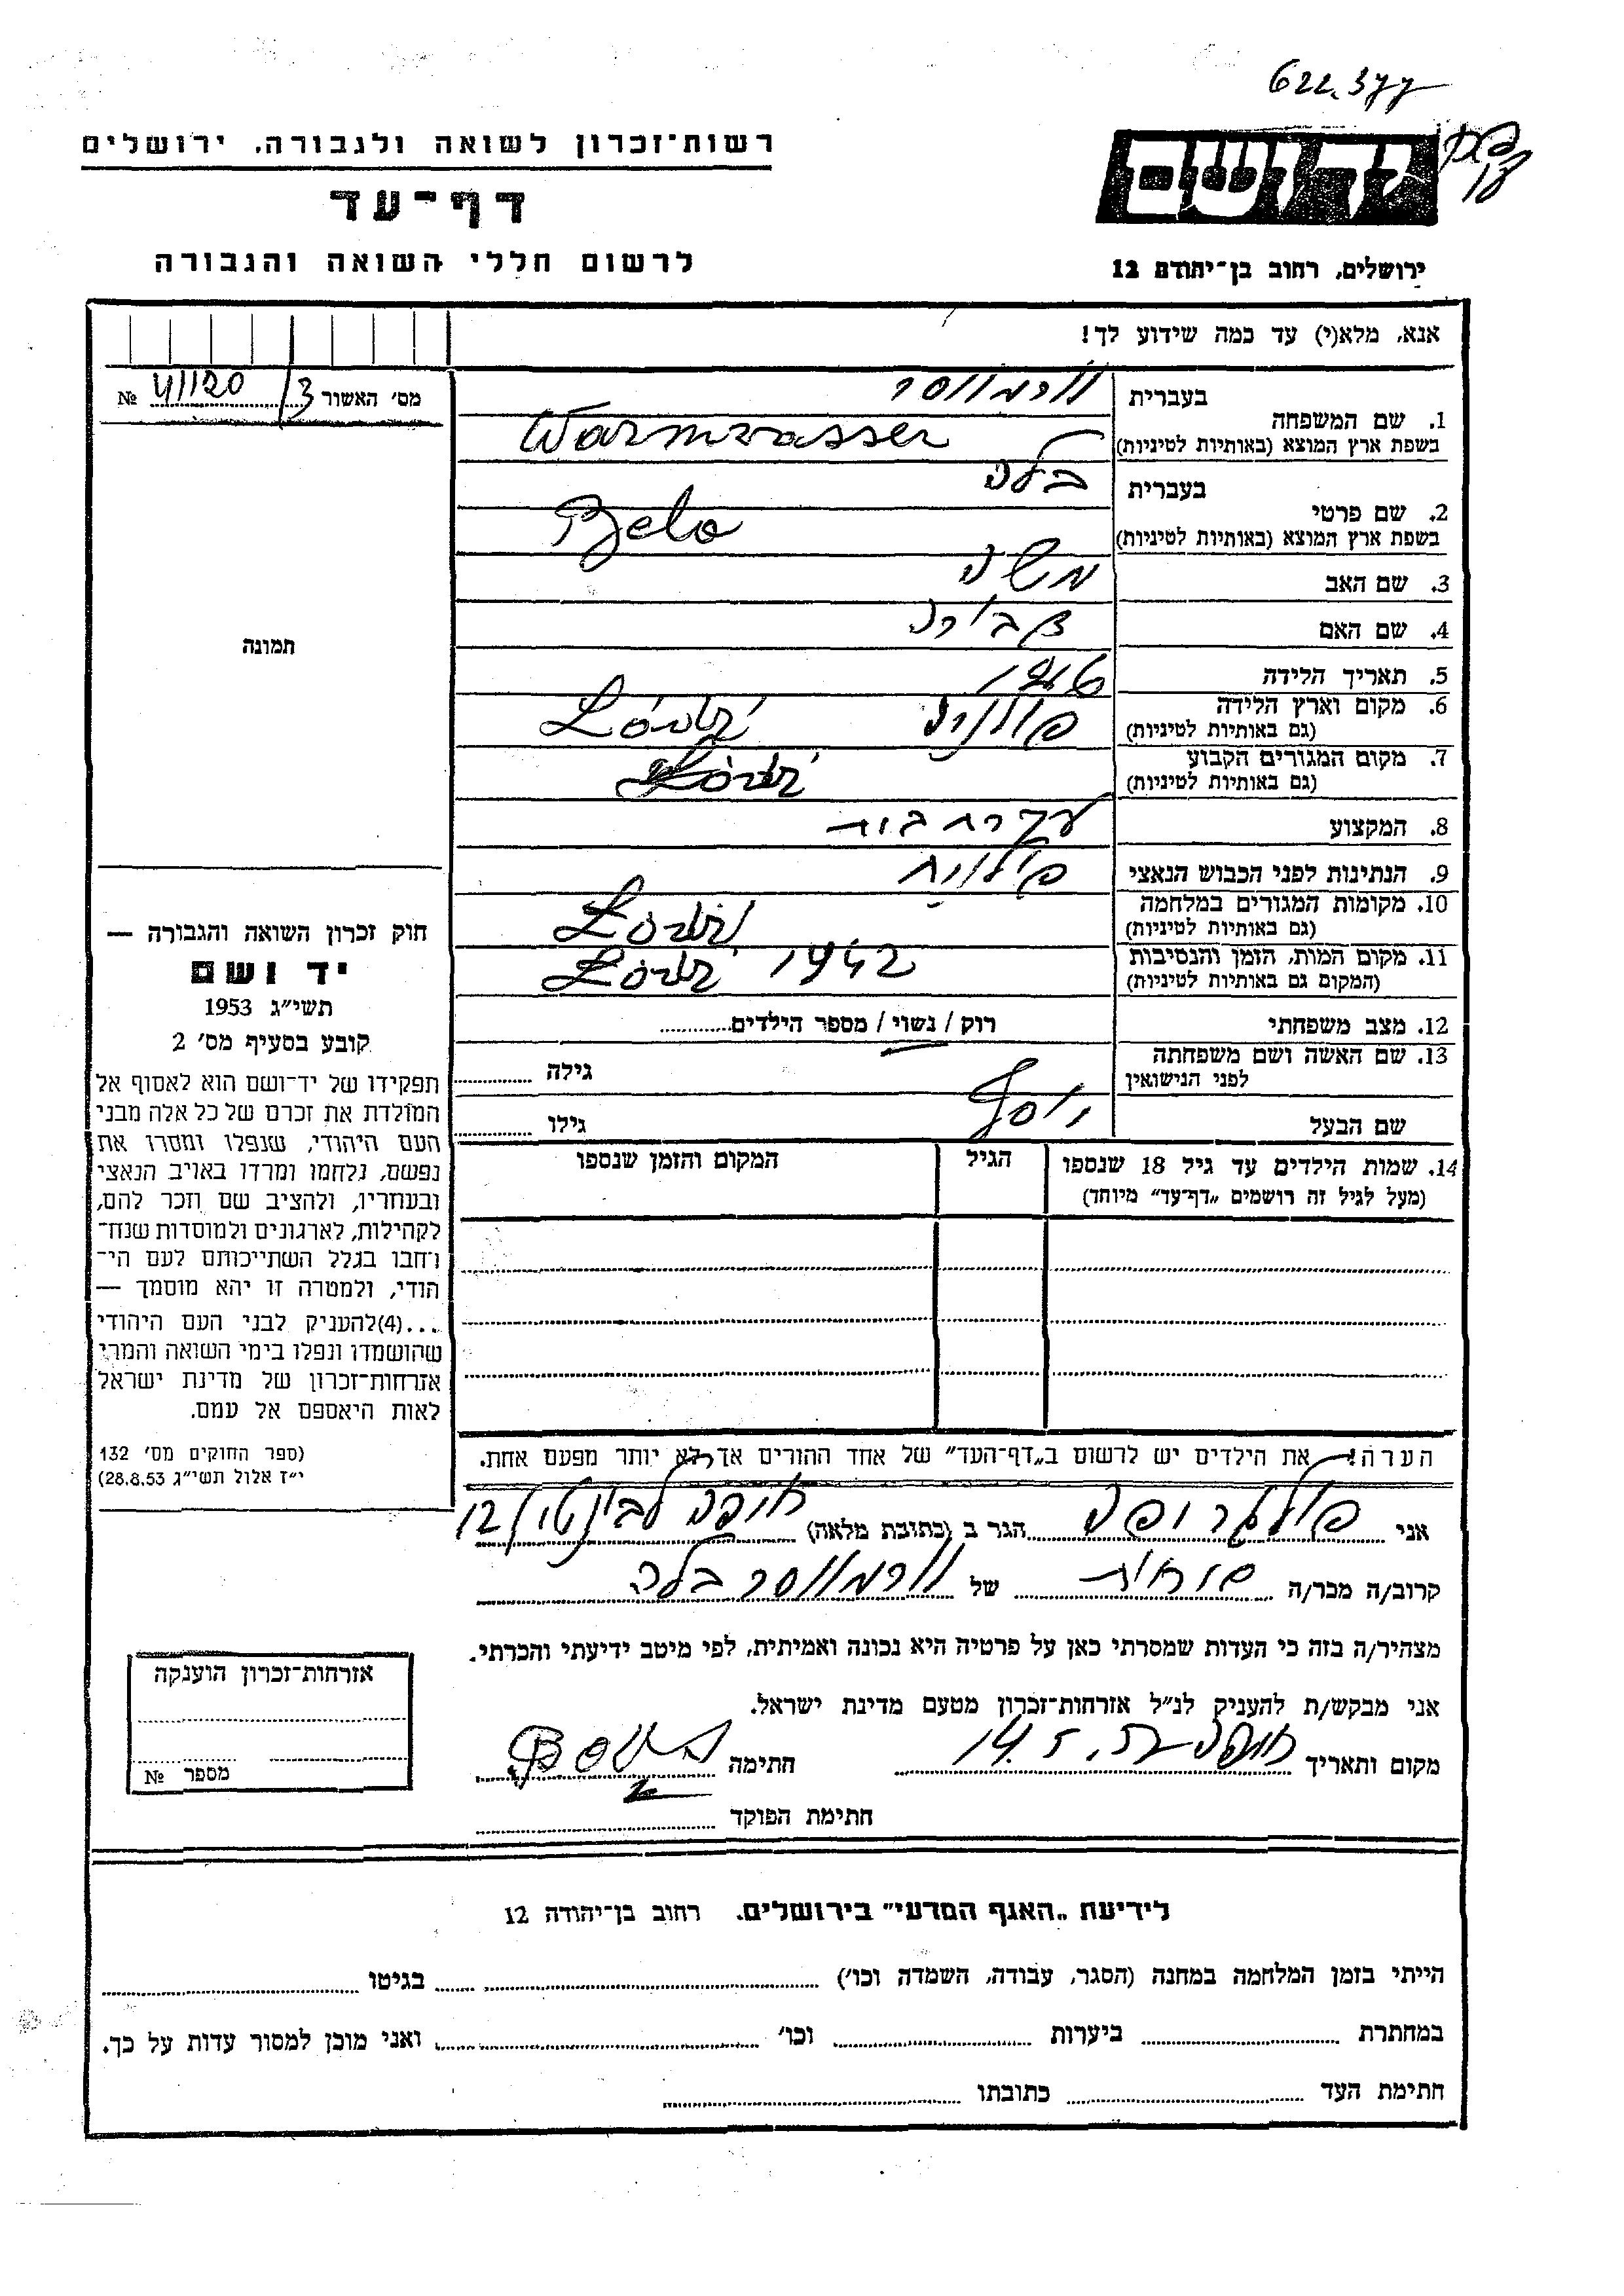 622.377
רשות־זכרון לשואה ולגבורה, ירושלים
דף־עד
לרשום חללי השואה והגבורה
יד ושם
ירושלים, רחוב בן־יהודה 12
אנא, מלא(י) עד כמה שידוע לך!
מס׳ האשור 3/ 41120 №
בעברית וורמווסר
1. שם המשפחה
בשפת ארץ המוצא (באותיות לטיניות) Warmwasser
בעברית בלה
2. שם פרטי
בשפת ארץ המוצא (באותיות לטיניות) Bela
3. שם האב משה
4. שם האם
5. תאריך הלידה
6. מקום וארץ הלידה פולניה Łódź
(גם באותיות לטיניות)
7. מקום המגורים הקבוע Łódź
(גם באותיות לטיניות)
8. המקצוע עקרת בית
9. הנתינות לפני הכבוש הנאצי פולנית
10. מקומות המגורים במלחמה Łódź
(גם באותיות לטיניות)
11. מקום המות, הזמן והנסיבות Łódź 1942
(המקום גם באותיות לטיניות)
12. מצב משפחתי רוק / נשוי / מספר הילדים
13. שם האשה ושם משפחתה
לפני הנישואין גילה
שם הבעל יוסף גילו
14. שמות הילדים עד גיל 18 שנספו הגיל המקום והזמן שנספו
(מעל לגיל זה רושמים „דף־עד” מיוחד)
תמונה
חוק זכרון השואה והגבורה —
יד ושם
תשי״ג 1953
קובע בסעיף מס׳ 2
תפקידו של יד־ושם הוא לאסוף אל
המולדת את זכרם של כל אלה מבני
העם היהודי, שנפלו ומסרו את
נפשם, נלחמו ומרדו באויב הנאצי
ובעוזריו, ולהציב שם וזכר להם,
לקהילות, לארגונים ולמוסדות שנח־
רבו בגלל השתייכותם לעם הי־
הודי, ולמטרה זו יהא מוסמך —
...(4)להעניק לבני העם היהודי
שהושמדו ונפלו בימי השואה והמרי
אזרחות־זכרון של מדינת ישראל
לאות היאספם אל עמם.
(ספר החוקים מס׳ 132
י״ז אלול תשי״ג 28.8.53)
הערה: את הילדים יש לרשום ב„דף־העד” של אחד ההורים אך לא יותר מפעם אחת.
אני הגר ב (כתובת מלאה) חיפה 12
קרוב/ה מכר/ה של וורמווסר בלה
מצהיר/ה בזה כי העדות שמסרתי כאן על פרטיה היא נכונה ואמיתית, לפי מיטב ידיעתי והכרתי.
אני מבקש/ת להעניק לנ״ל אזרחות־זכרון מטעם מדינת ישראל.
מקום ותאריך חיפה חתימה
חתימת הפוקד
אזרחות־זכרון הוענקה
מספר №
לידיעת „האגף המדעי” בירושלים. רחוב בן־יהודה 12
הייתי בזמן המלחמה במחנה (הסגר, עבודה, השמדה וכו׳) בגיטו
במחתרת ביערות וכו׳ ואני מוכן למסור עדות על כך.
חתימת העד כתובתו